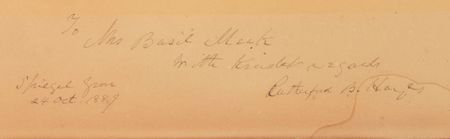 To
Mrs Basil Meek
with kindest regards
Rutherford B. Hayes
Spiegel Grove
24 Oct. 1889